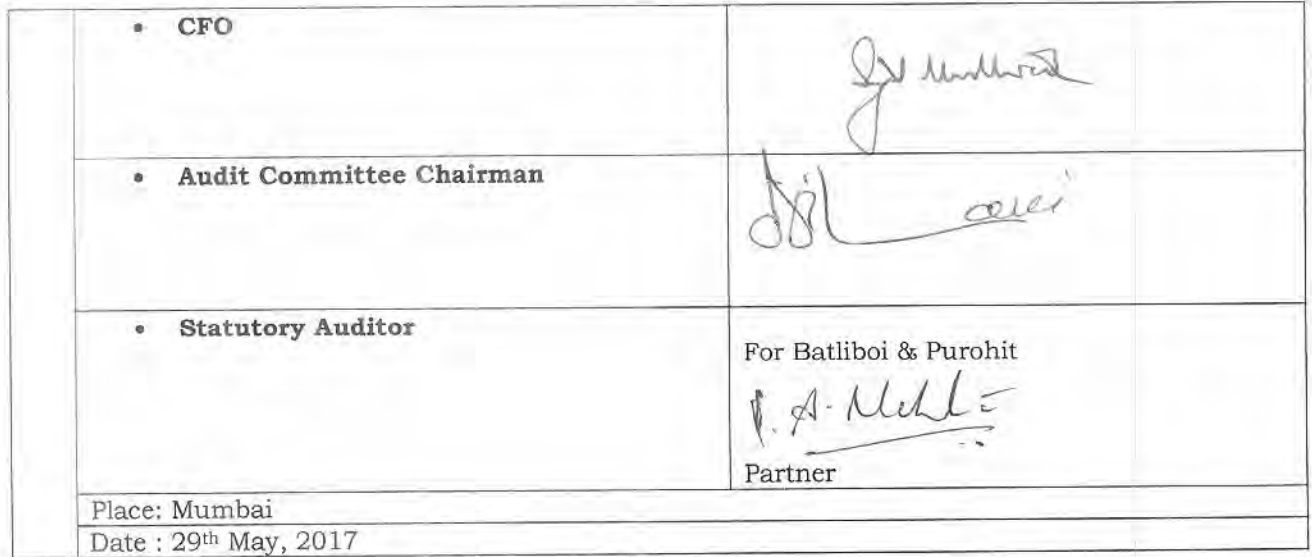 • CFO
• Audit Committee Chairman
• Statutory Auditor
For Batliboi & Purohit
Partner
Place: Mumbai
Date : 29th May, 2017